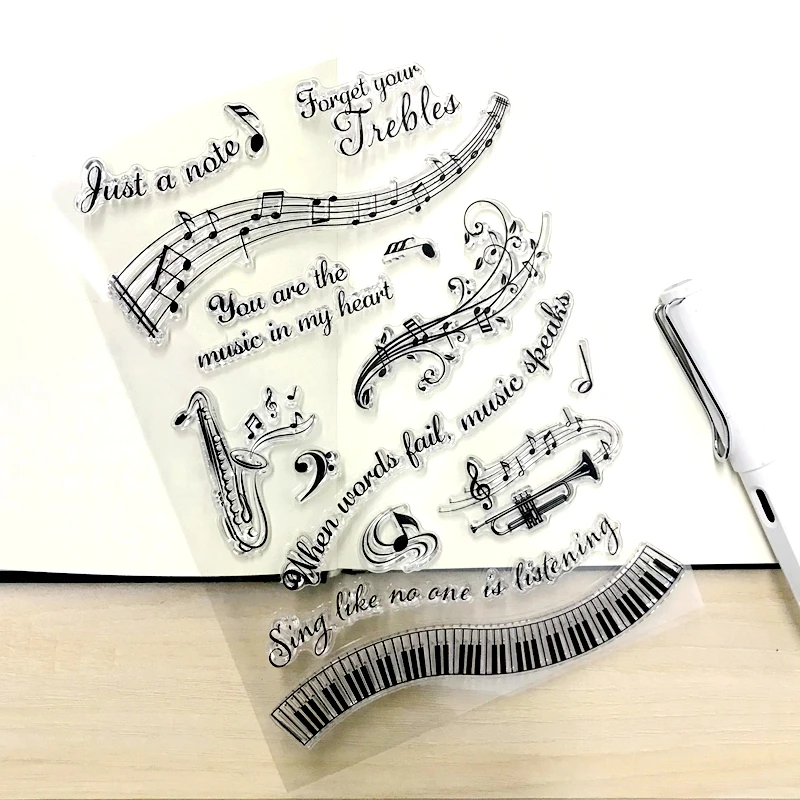 Forget your
Trebles
Just a note
You are the
music in my heart
When words fail, music speaks
Sing like no one is listening